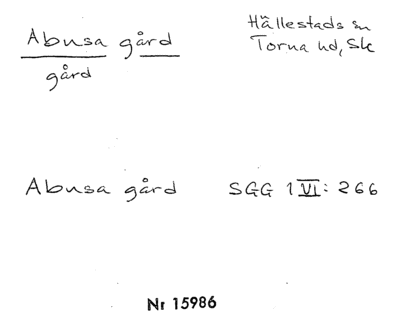 Abusa gård
gård
Hällestads sn
Torna hd, Sk
Abusa gård SGG 1 VI: 266
Nr 15986